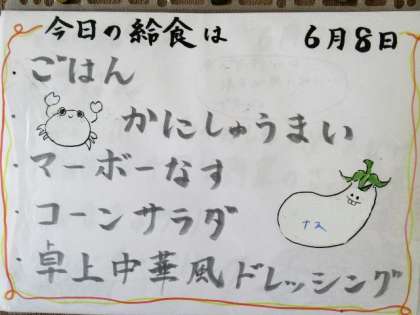 今日の給食は 6月8日
・ごはん
・かにしゅうまい
・マーボーなす
・コーンサラダ
・卓上中華風ドレッシング
ナス